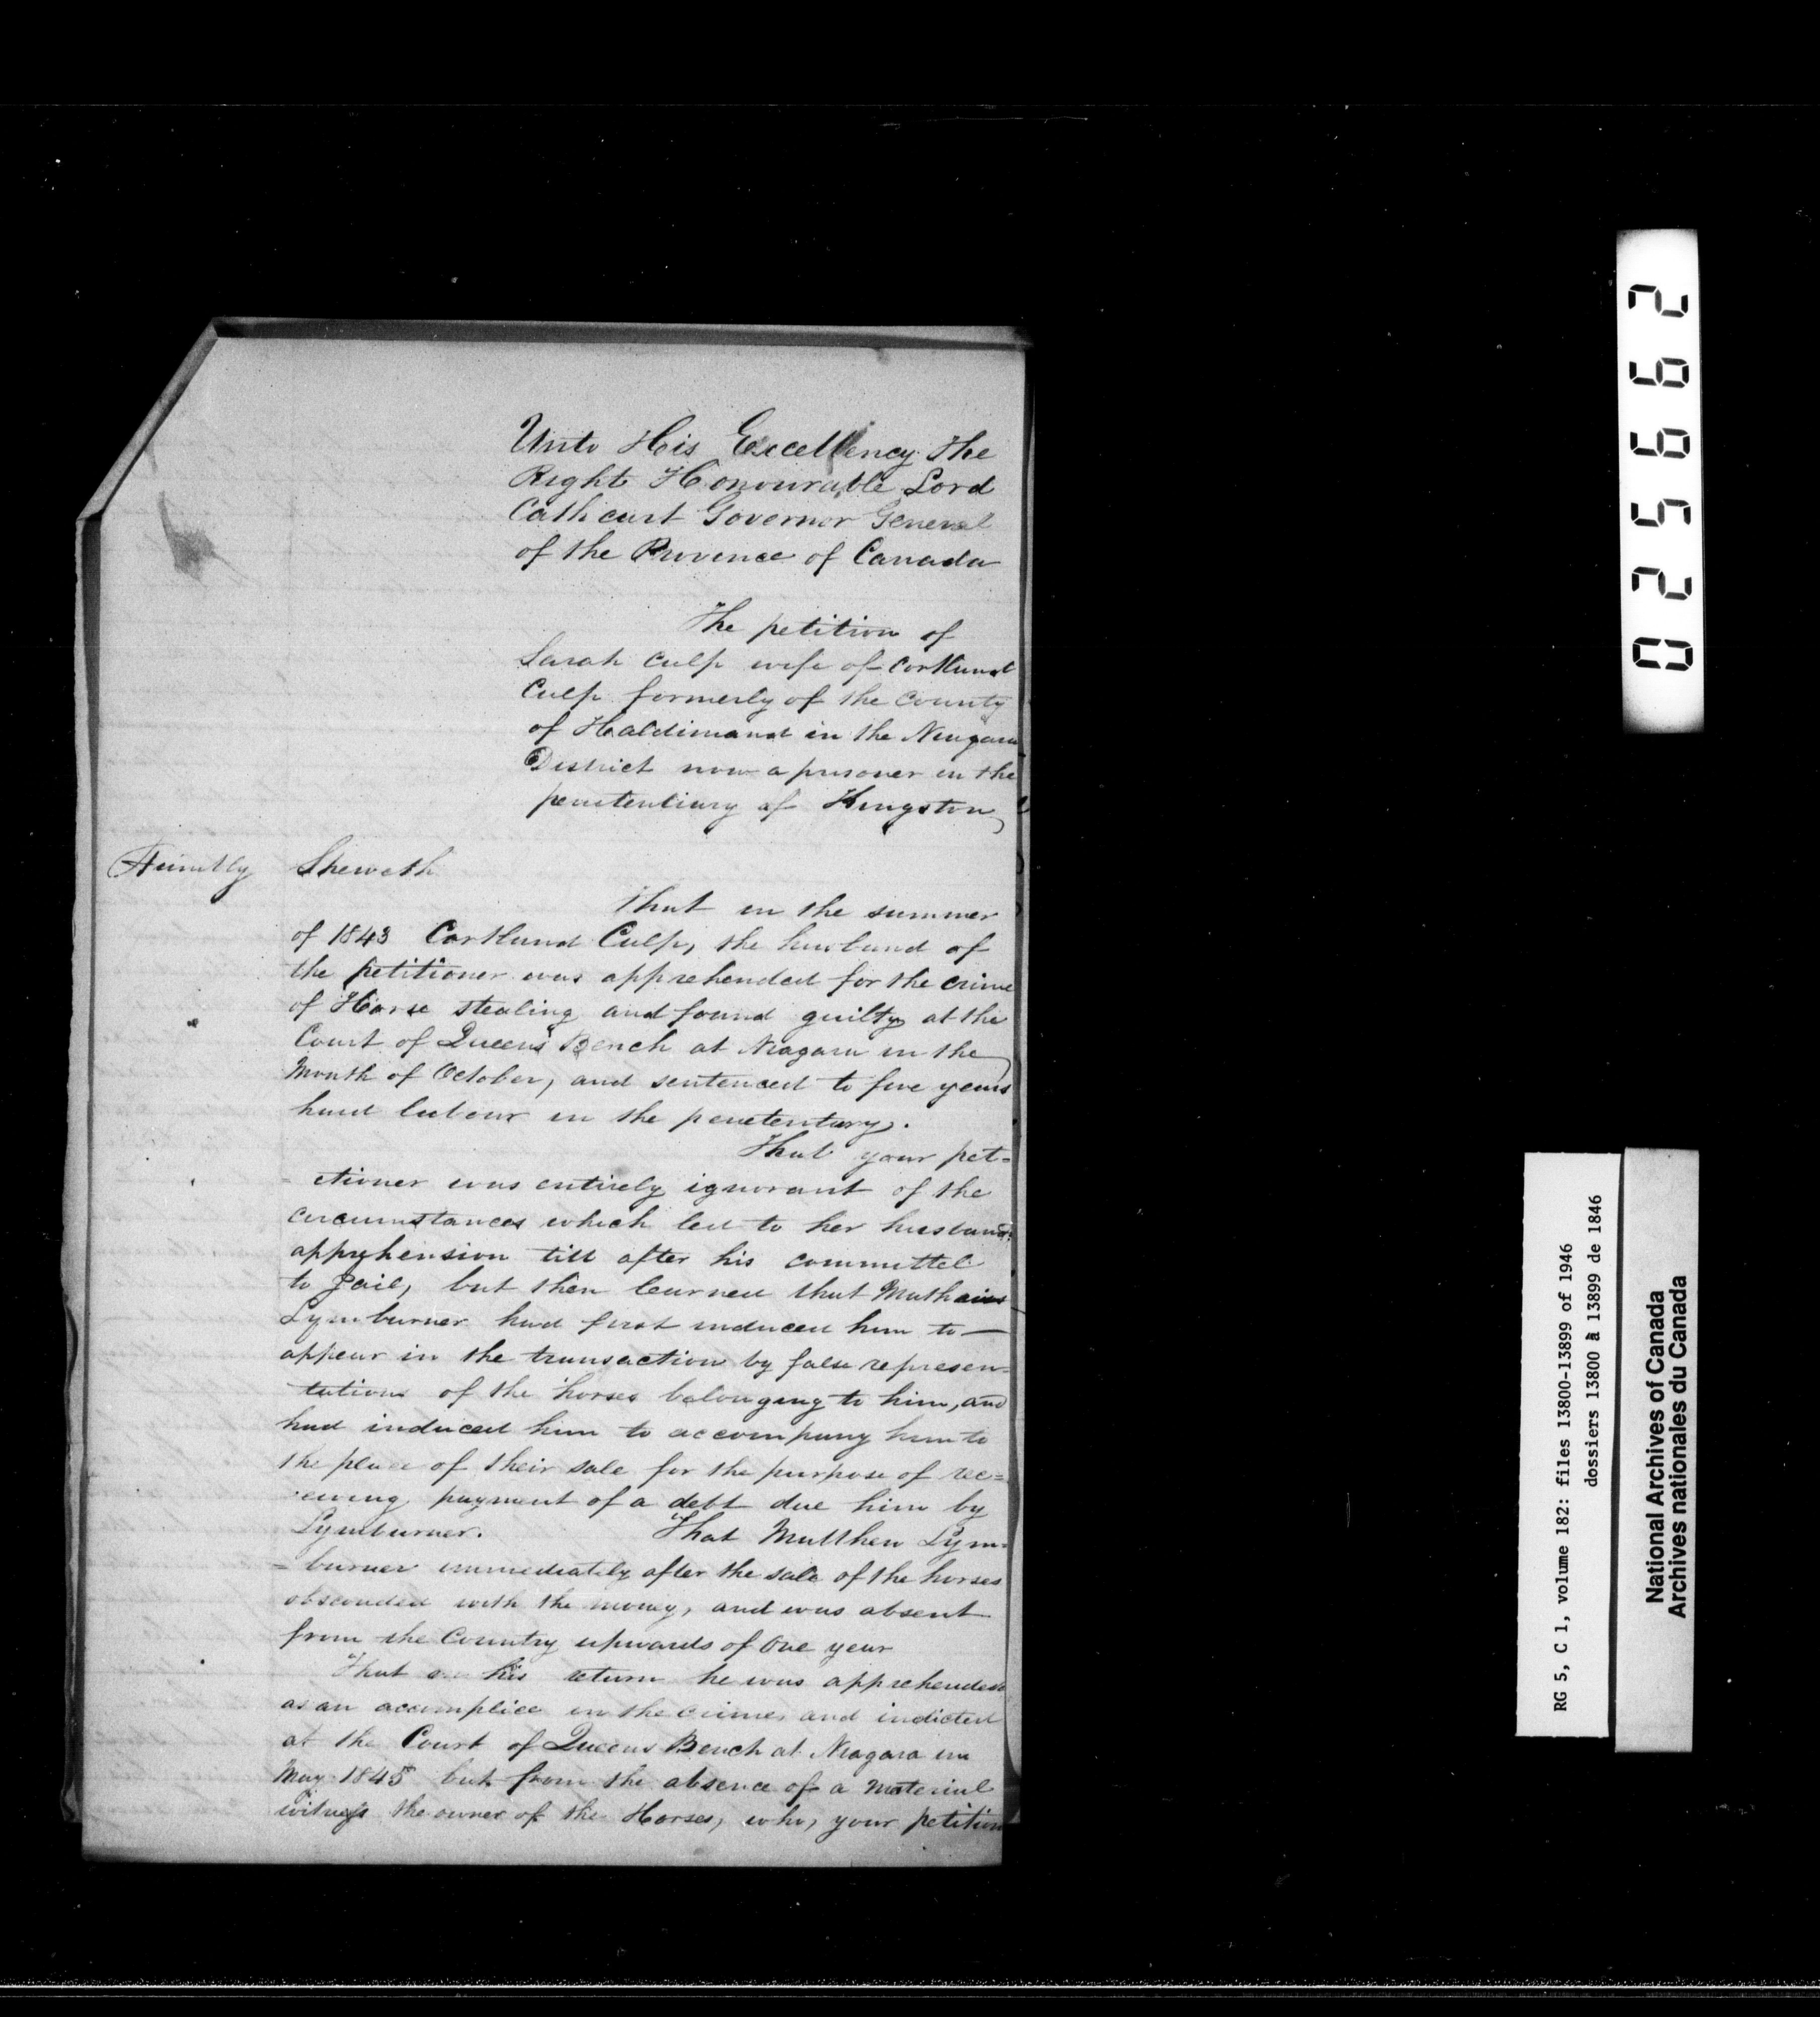 Unto His Excellency The
Right Honourable Lord
Cathcart Governor General
of the Province of Canada
The petition of
Sarah Culp wife of Cortland
Culp formerly of the County
of Haldimand in the Niagara
District now a prisoner in the
penitentiary of Kingston
Humbly Sheweth
That in the summer
of 1843 Cortland Culp, the husband of
the petitioner was apprehended for the crime
of Horse stealing and found guilty at the
Court of Queens Bench at Niagara in the
Month of October, and sentenced to five years
hard labour in the penetentary.
That your pet=
=itioner was entirely ignorant of the
circumstances which led to her husbands
apprehension till after his committel
to Jail, but then learned that Mathaius
Lymburner had first induced him to —
appear in the transaction by false represen=
tations of the horses belonging to him, and
had induced him to accompany him to
the place of their sale for the purpose of rec=
=eiving payment of a debt due him by
Lymburner. That Matthew Lym=
=burner immediately after the sale of the horses
absconded with the money, and was absent
from the Country upwards of One year
That on his return he was apprehended
as an accomplice in the crime, and indicted
at the Court of Queens Bench at Niagara in
May 1845 but from the absence of a material
witness the owner of the Horses, who, your petition
025662
RG 5, C 1, volume 182: files 13800-13899 of 1946
dossiers 13800 à 13899 de 1846
National Archives of Canada
Archives nationales du Canada